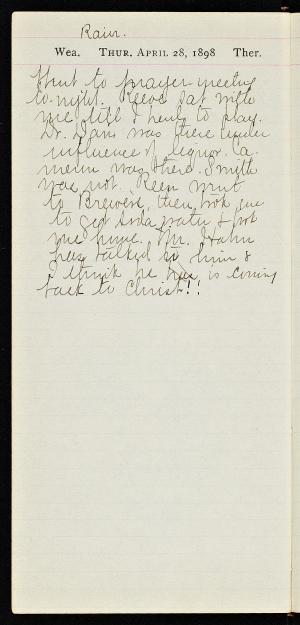 Rain.
Wea. THUR. APRIL 28, 1898 Ther.
Went to prayer-meeting
to-night. Reece sat with
me till I went to play.
Dr. Davis was there under
influence of liquor. A.
was there. Smith
was not. Reen went
to Brewers, then took me
to get soda water & took
me home. Mr. Hahn
has talked to him &
I think he is coming
back to Christ!!